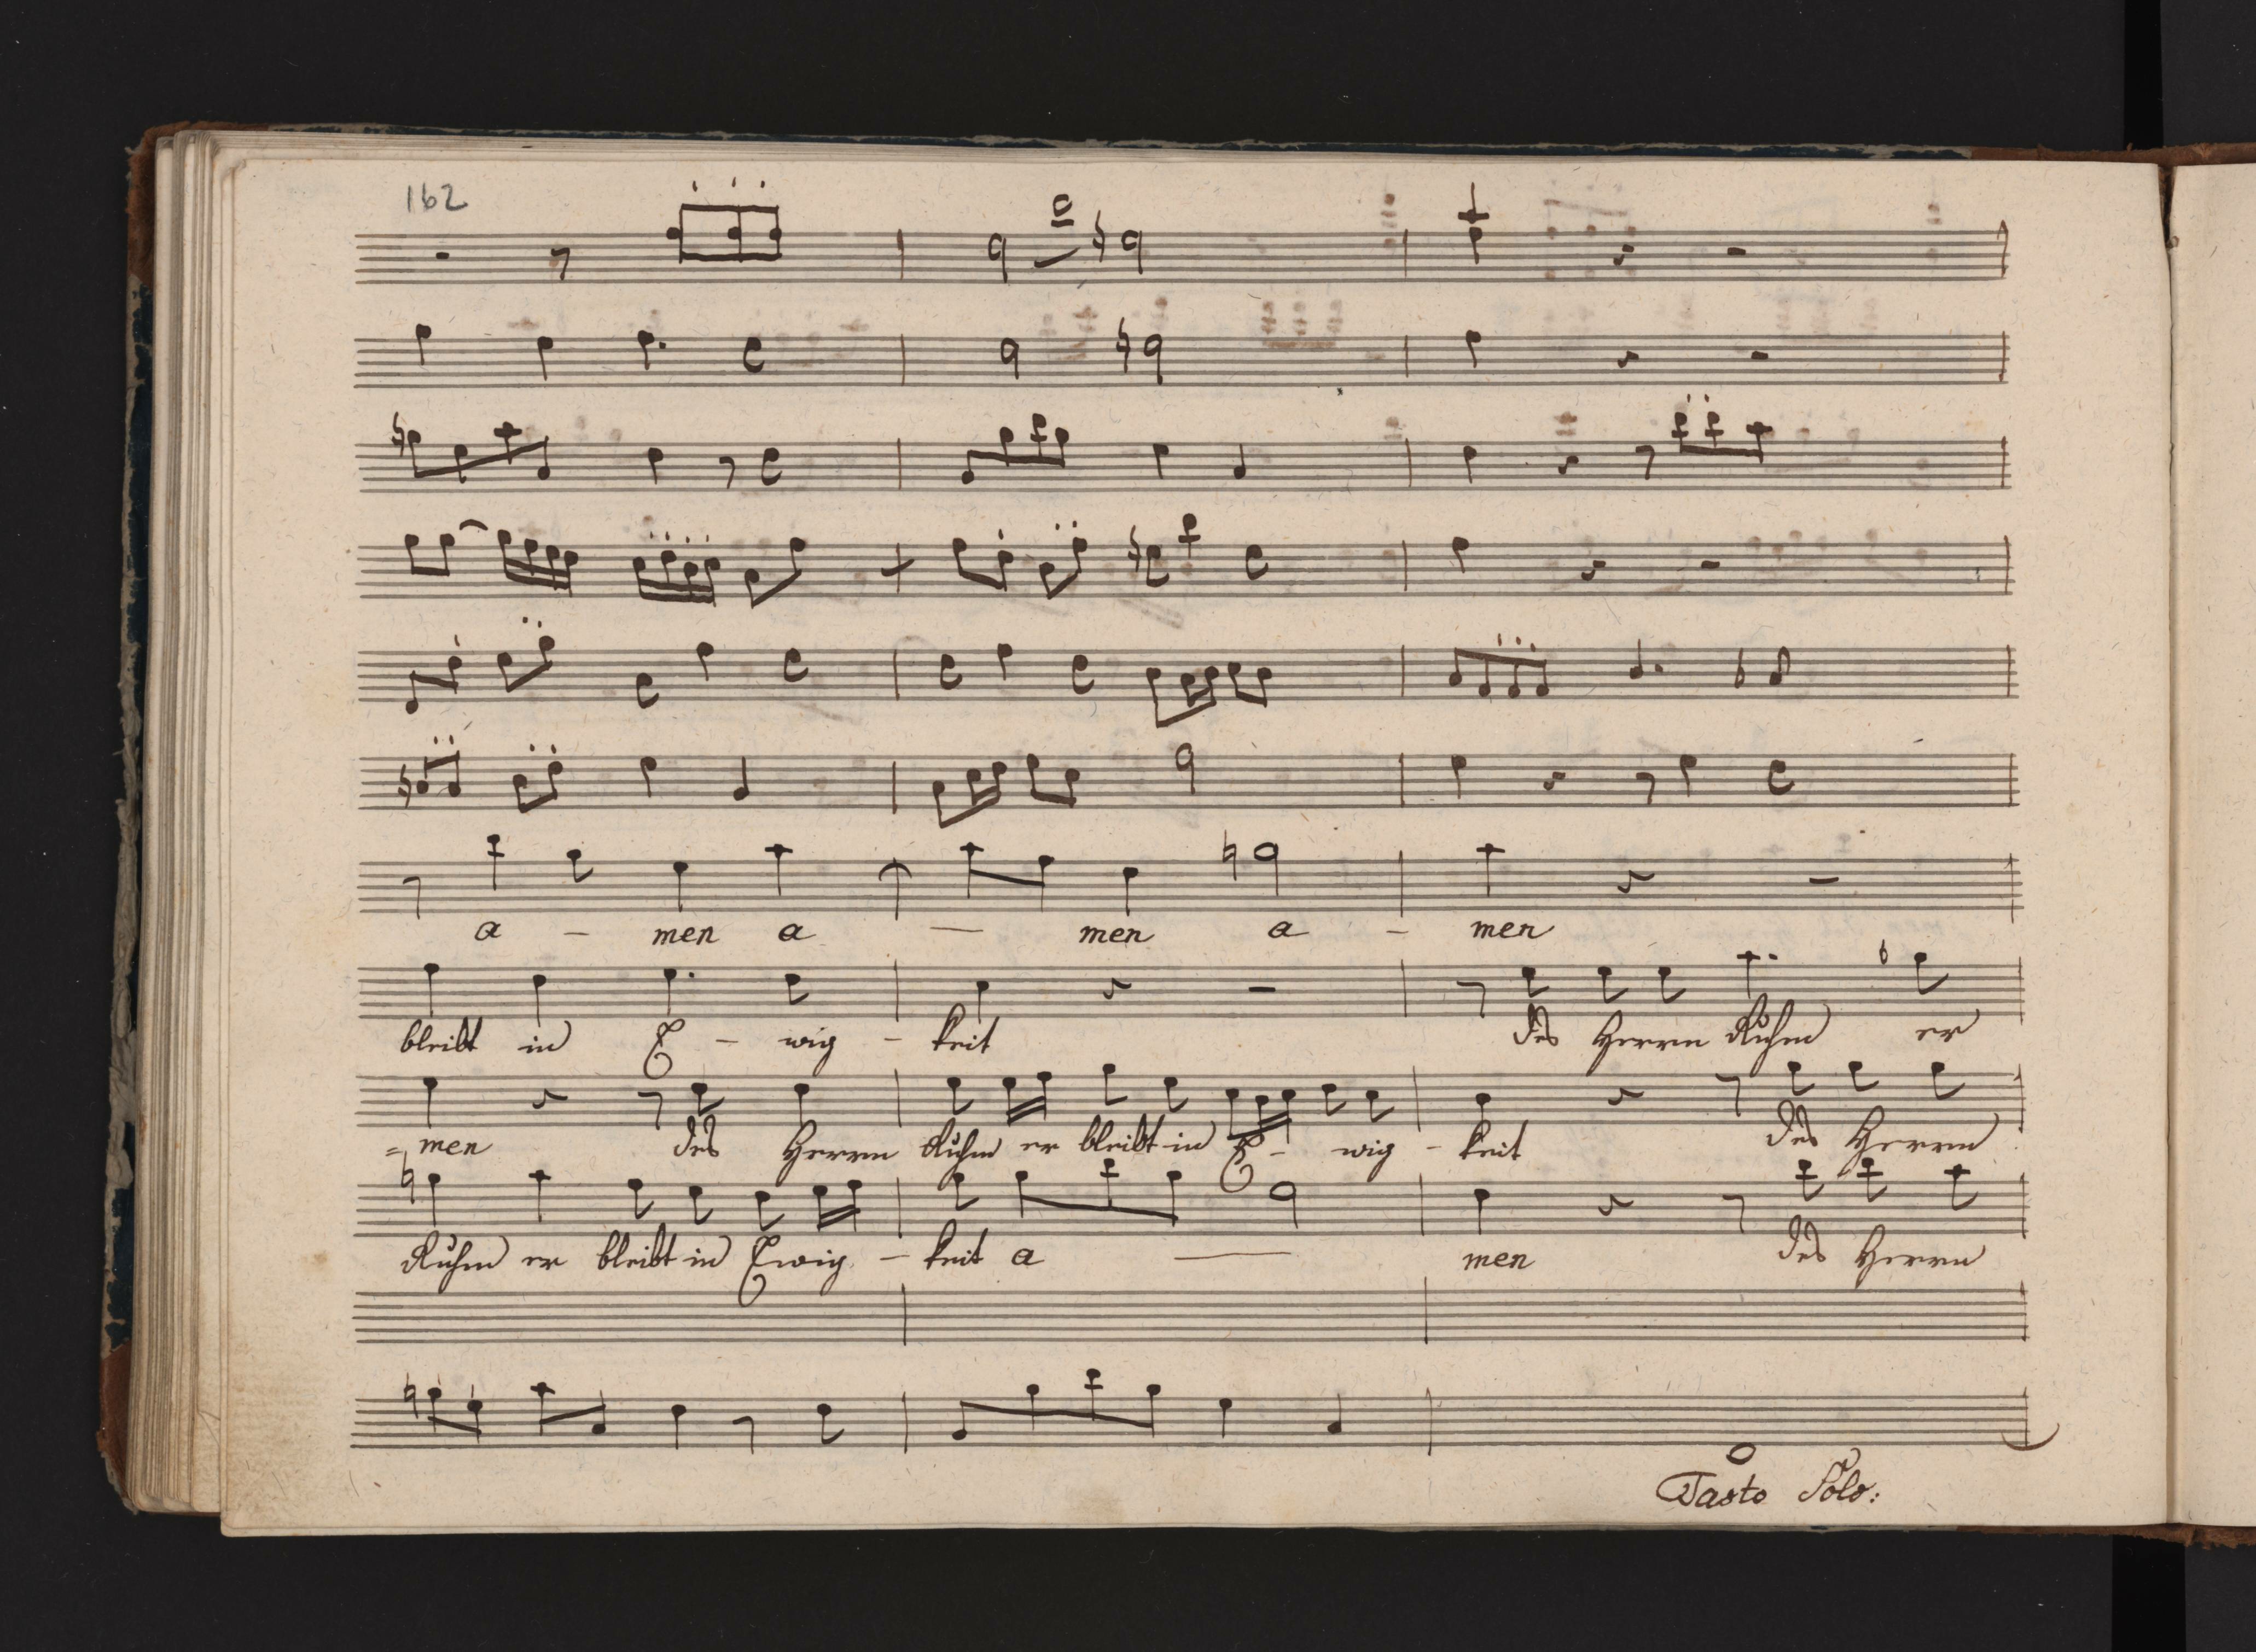 162
a – men a — men a – men
bleibt in E – wig – keit des Herrn Ruhm er
= men des Herrn Ruhm er bleibt in E – wig – keit des Herrn
Ruhm er bleibt in Ewig – keit a — men des Herrn
Tasto Solo: